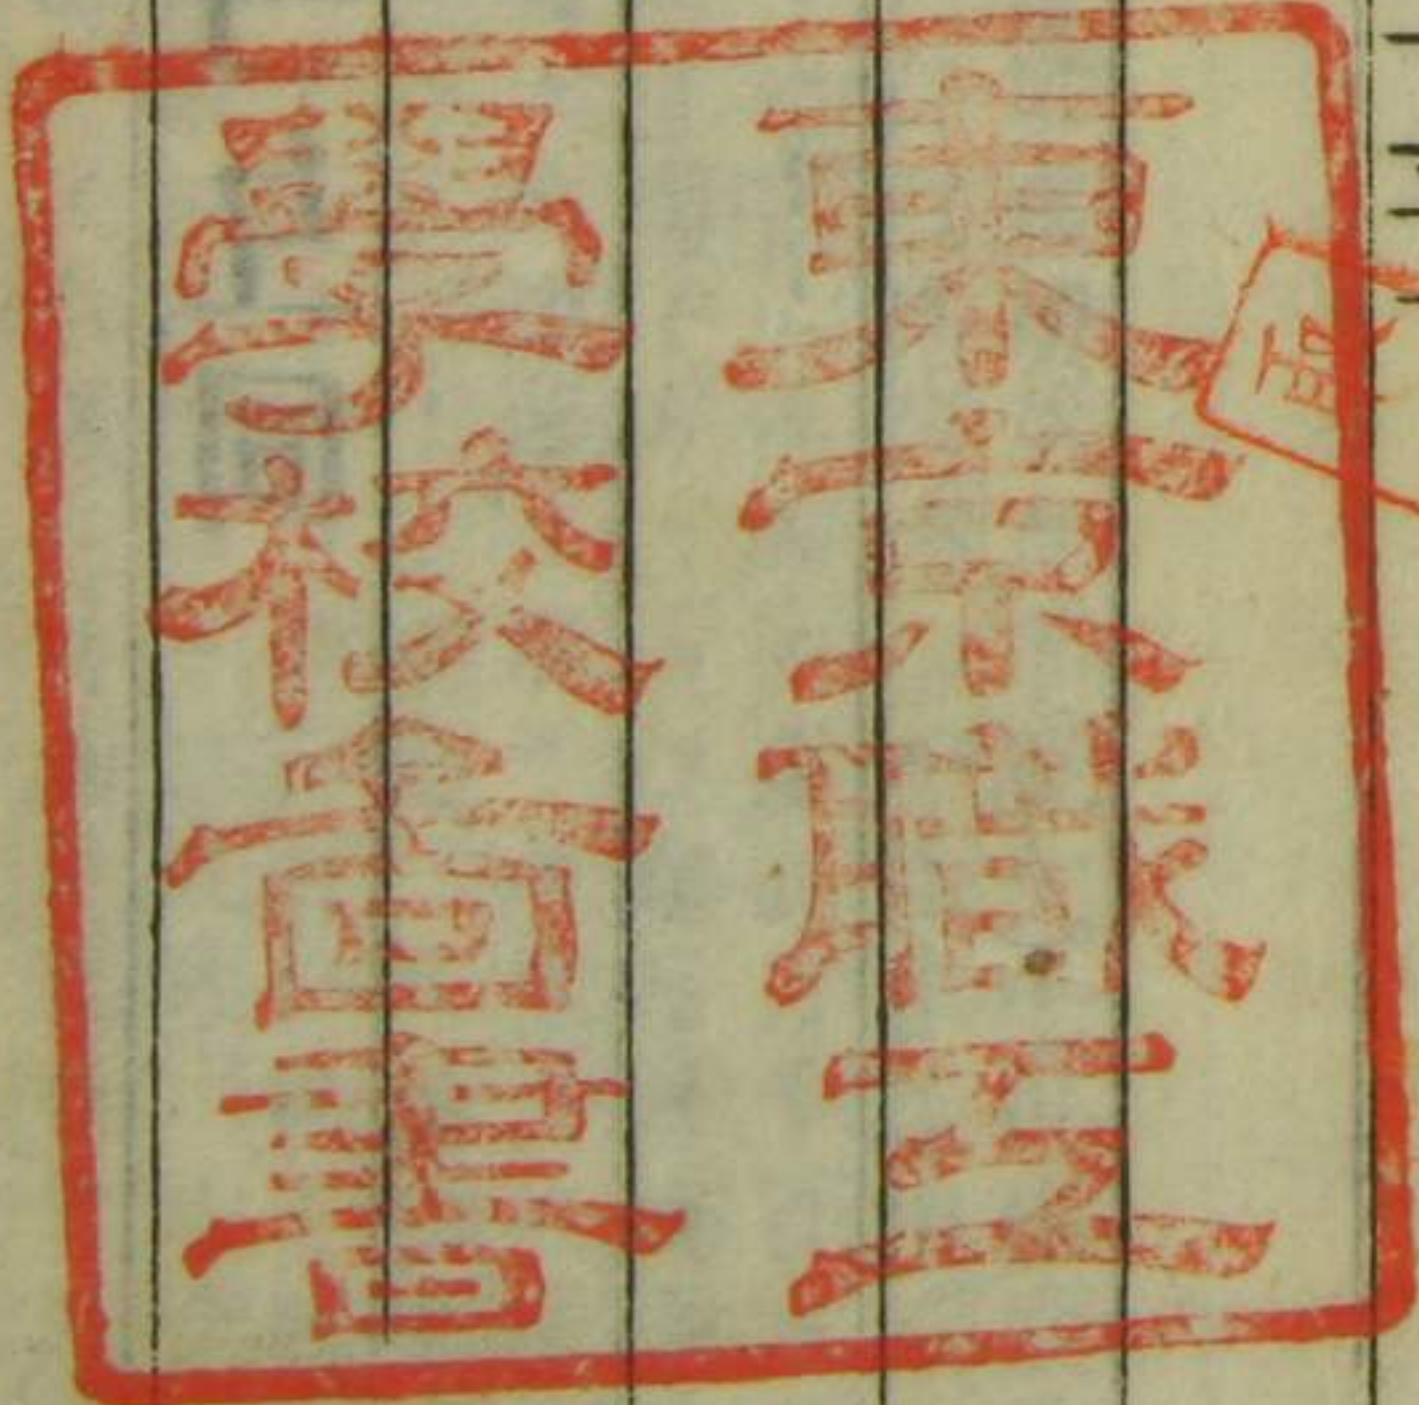 東京職工
學校圖書